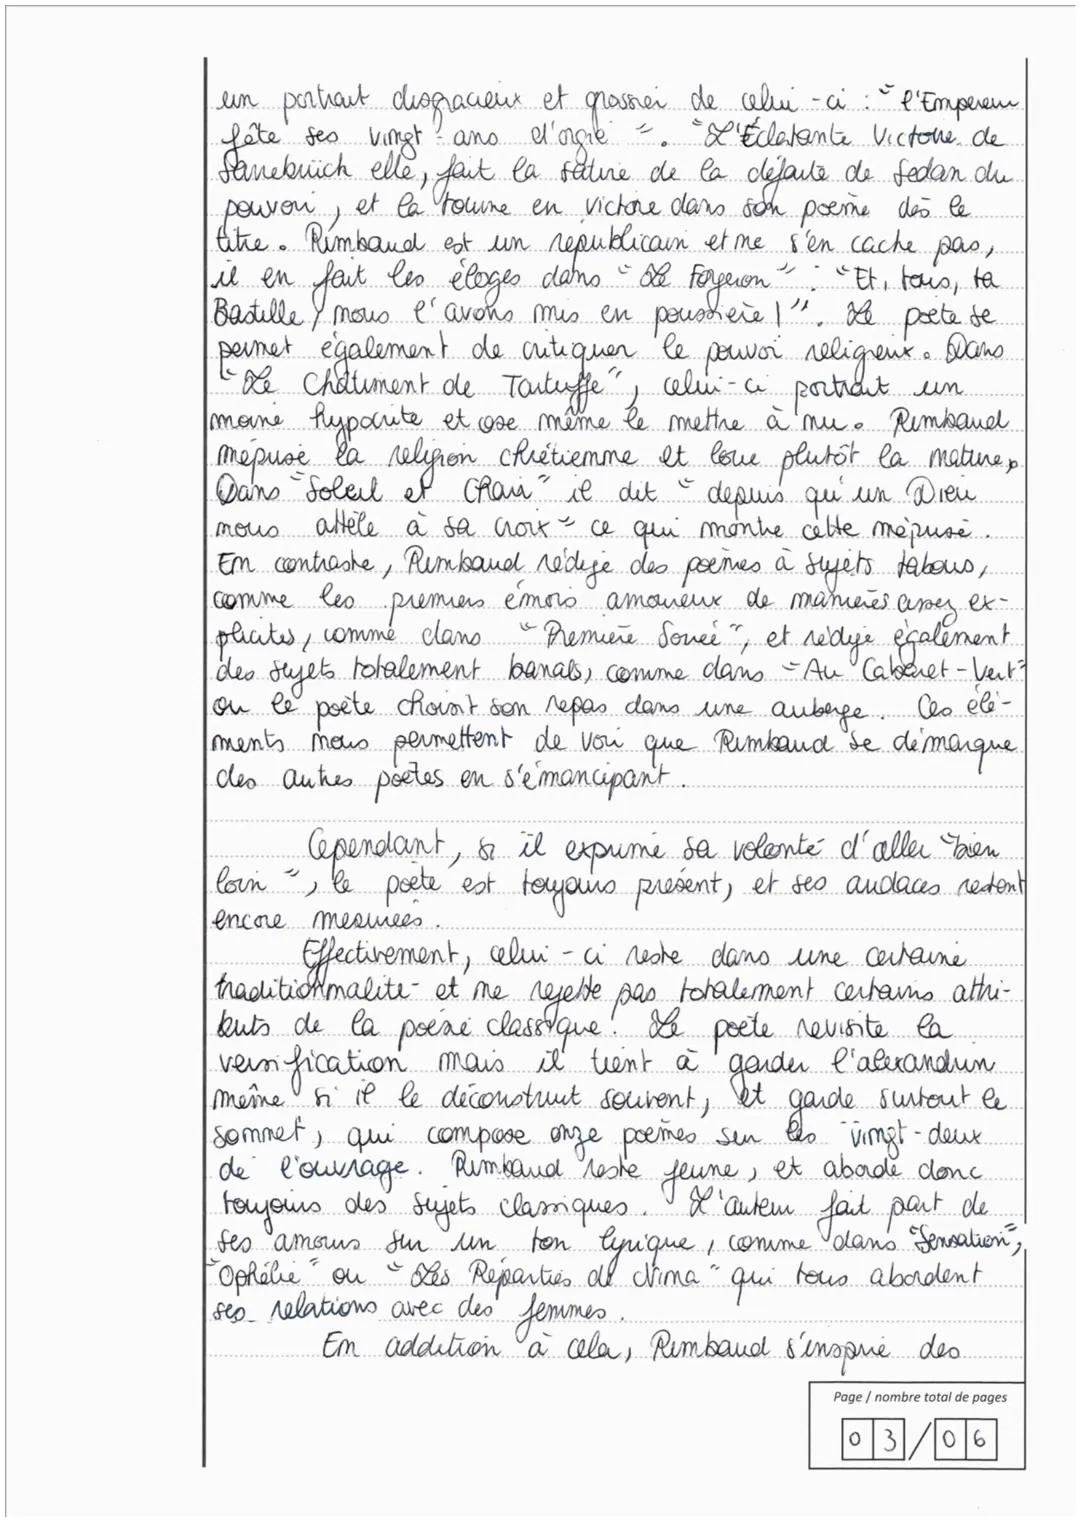 un portrait disgracieux et grossier de celui-ci : "l'Empereur
fête ses vingt ans d'orgie". "L'Éclatante Victoire de
Sarrebrück elle, fait la satire de la défaite de Sedan du
pouvoir, et la tourne en victoire dans son poème dès le
titre. Rimbaud est un républicain et ne s'en cache pas,
il en fait les éloges dans "Le Forgeron" : "Et, tous, ta
Bastille / nous l'avons mis en poussière !". Le poète se
permet également de critiquer le pouvoir religieux. Dans
"Le Châtiment de Tartuffe", celui-ci portrait un
moine hypocrite et ose même le mettre à nu. Rimbaud
méprise la religion chrétienne et loue plutôt la nature,
Dans "Soleil et Chair" il dit "depuis qu'un Dieu
nous attèle à sa croix" ce qui montre cette méprise.
En contraste, Rimbaud rédige des poèmes à sujets tabous,
comme les premiers émois amoureux de manières assez ex-
plicites, comme dans "Première Soirée", et rédige également
des sujets totalement banals, comme dans "Au Cabaret-Vert"
ou le poète choisit son repas dans une auberge. Ces élé-
ments nous permettent de voir que Rimbaud se démarque
des autres poètes en s'émancipant.
Cependant, si il exprime sa volonté d'aller "bien
loin", le poète est toujours présent, et ses audaces restent
encore mesurées.
Effectivement, celui-ci reste dans une certaine
traditionnalité et ne rejette pas totalement certains attri-
buts de la poésie classique. Le poète revisite la
versification mais il tient à garder l'alexandrin
même si il le déconstruit souvent, et garde surtout le
sonnet, qui compose onze poèmes sur les vingt-deux
de l'ouvrage. Rimbaud reste jeune, et aborde donc
toujours des sujets classiques. L'auteur fait part de
ses amours sur un ton lyrique, comme dans "Sensation",
"Ophélie" ou "Les Réparties de Nina" qui tous abordent
ses relations avec des femmes.
En addition à cela, Rimbaud s'inspire des
Page / nombre total de pages
03/06